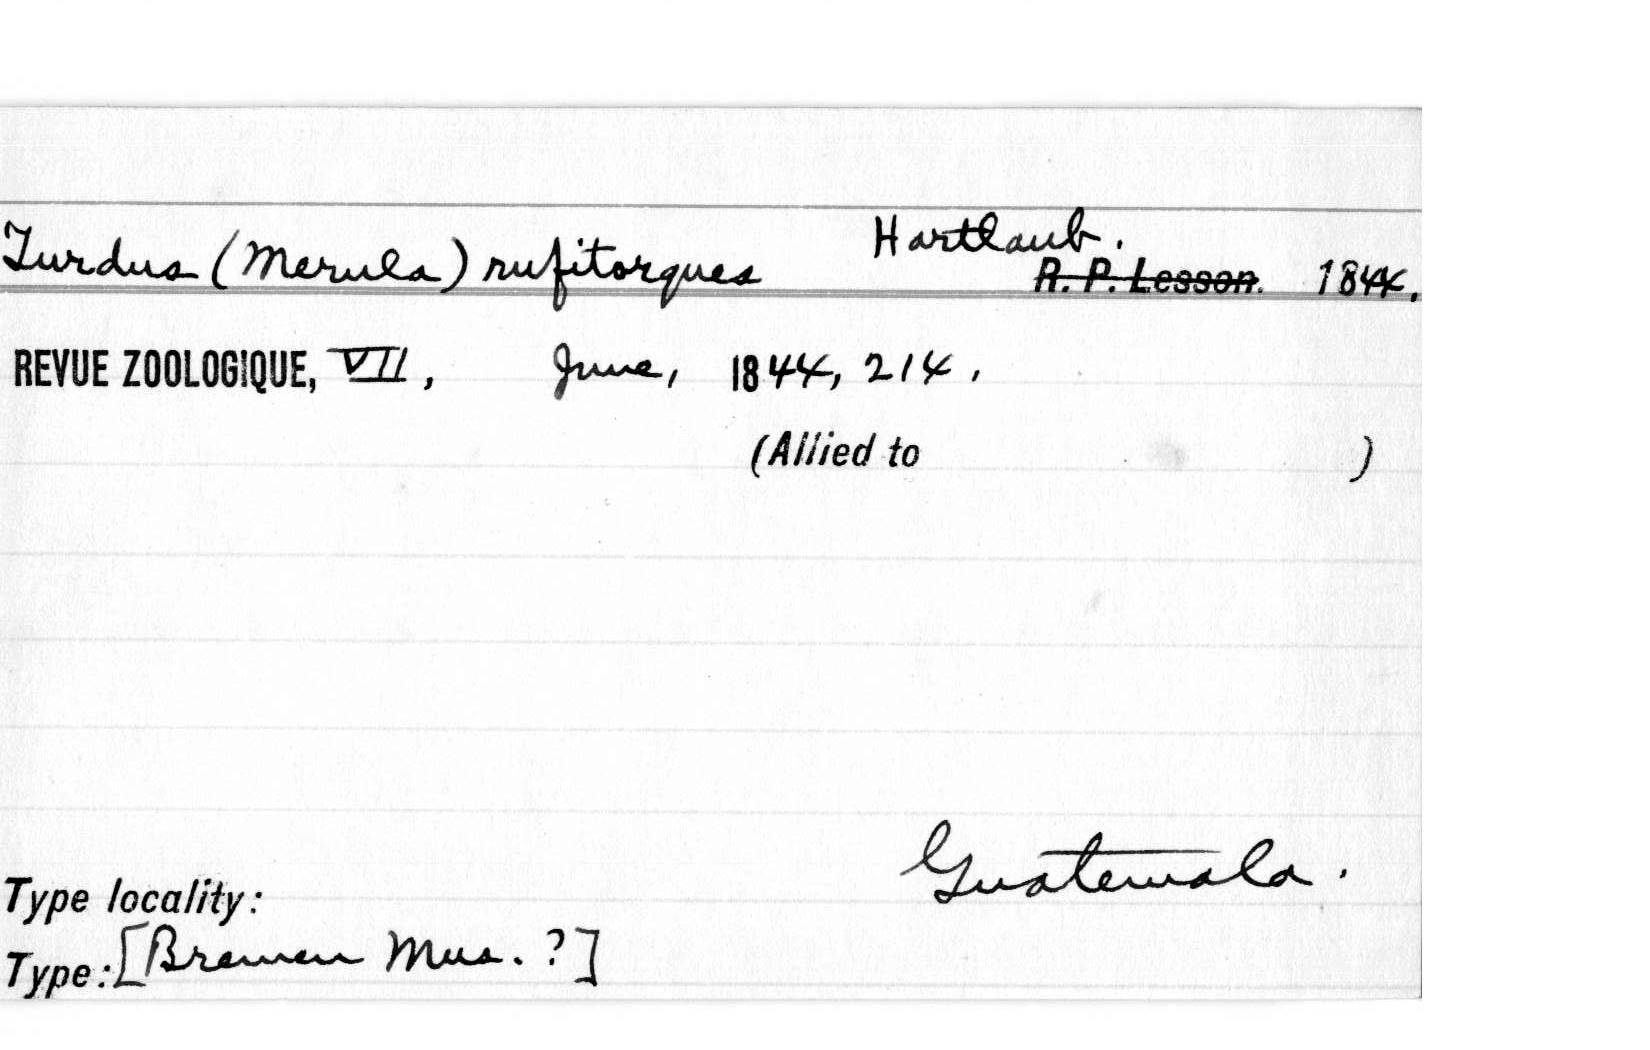 Turdus (Merula) rufitorques Hartlaub.
R. P. Lesson. 1844.
REVUE ZOOLOGIQUE, VII, June, 1844, 214.
(Allied to )
Guatemala.
Type locality:
Type: [Bremen Mus. ?]